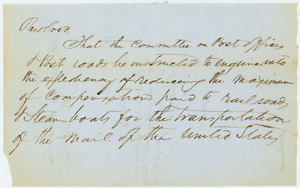 Resolved
That the Committee on Post offices
& Post roads be instructed to enquire into
the expediency of reducing the maximum
of compensation paid to rail roads
& Steam boats for the transportation
of the Mail of the United States